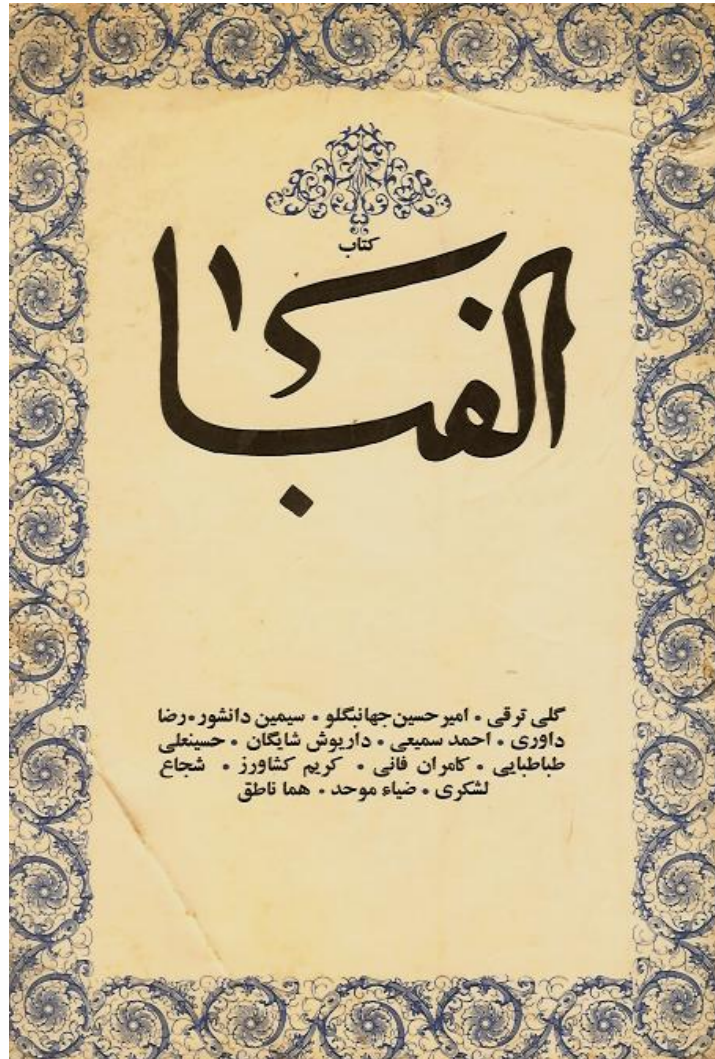 کتاب
الفبا
گلی ترقی • امیر حسین جهانبگلو • سیمین دانشور • رضا
داوری • احمد سمیعی • داریوش شایگان • حسینعلی
طباطبایی • کامران فانی • کریم کشاورز • شجاع
لشکری • ضیاء موحد • هما ناطق